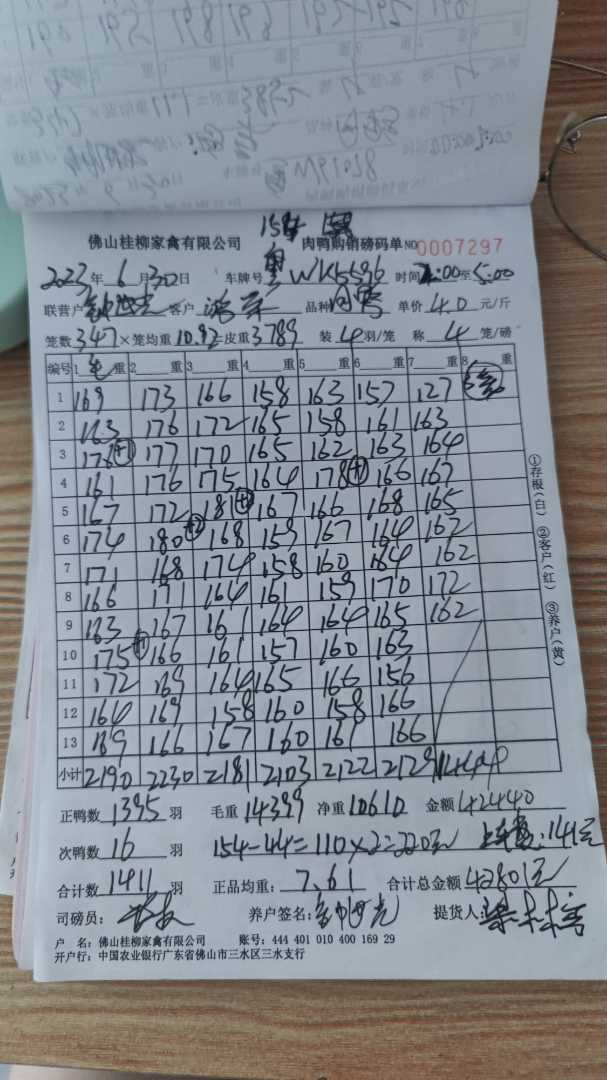 佛山桂柳家禽有限公司 肉鸭购销磅码单 NO 0007297
2023年6月30日 车牌号 粤WK5596 时间 :00至5:00
联营户 客户 品种 单价 4.0 元/斤
笼数 347 ×笼均重 10.92 =皮重 3789 装 4 羽/笼 称 4 笼/磅
编号 1 毛 重 2 重 3 重 4 重 5 重 6 重 7 重 8 重
1 169 173 166 158 163 157 127
2 163 176 172 165 158 161 163
3 178 +1 177 170 165 162 163 164
4 161 176 175 164 178 +1 166 167
5 167 172 181 +1 167 166 168 165
6 174 180 +2 168 159 167 164 162
7 171 168 174 158 160 164 162
8 166 171 164 161 159 170 172
9 163 167 161 164 164 165 162
10 175 +1 166 161 157 160 163
11 172 169 164 165 166 156
12 164 169 158 160 158 166
13 169 166 167 160 161 166
小计 2190 2230 2181 2103 2122 2129 1444
正鸭数 1395 羽 毛重 14399 净重 10610 金额 42440
次鸭数 16 羽 154-44=110×2=220元 上车费:141元
合计数 1411 羽 正品均重: 7.61 合计总金额 42801元
司磅员: 养户签名: 提货人:
户 名: 佛山桂柳家禽有限公司 账号: 444 401 010 400 169 29
开户行: 中国农业银行广东省佛山市三水区三水支行
①存根(白) ②客户(红) ③养户(黄)